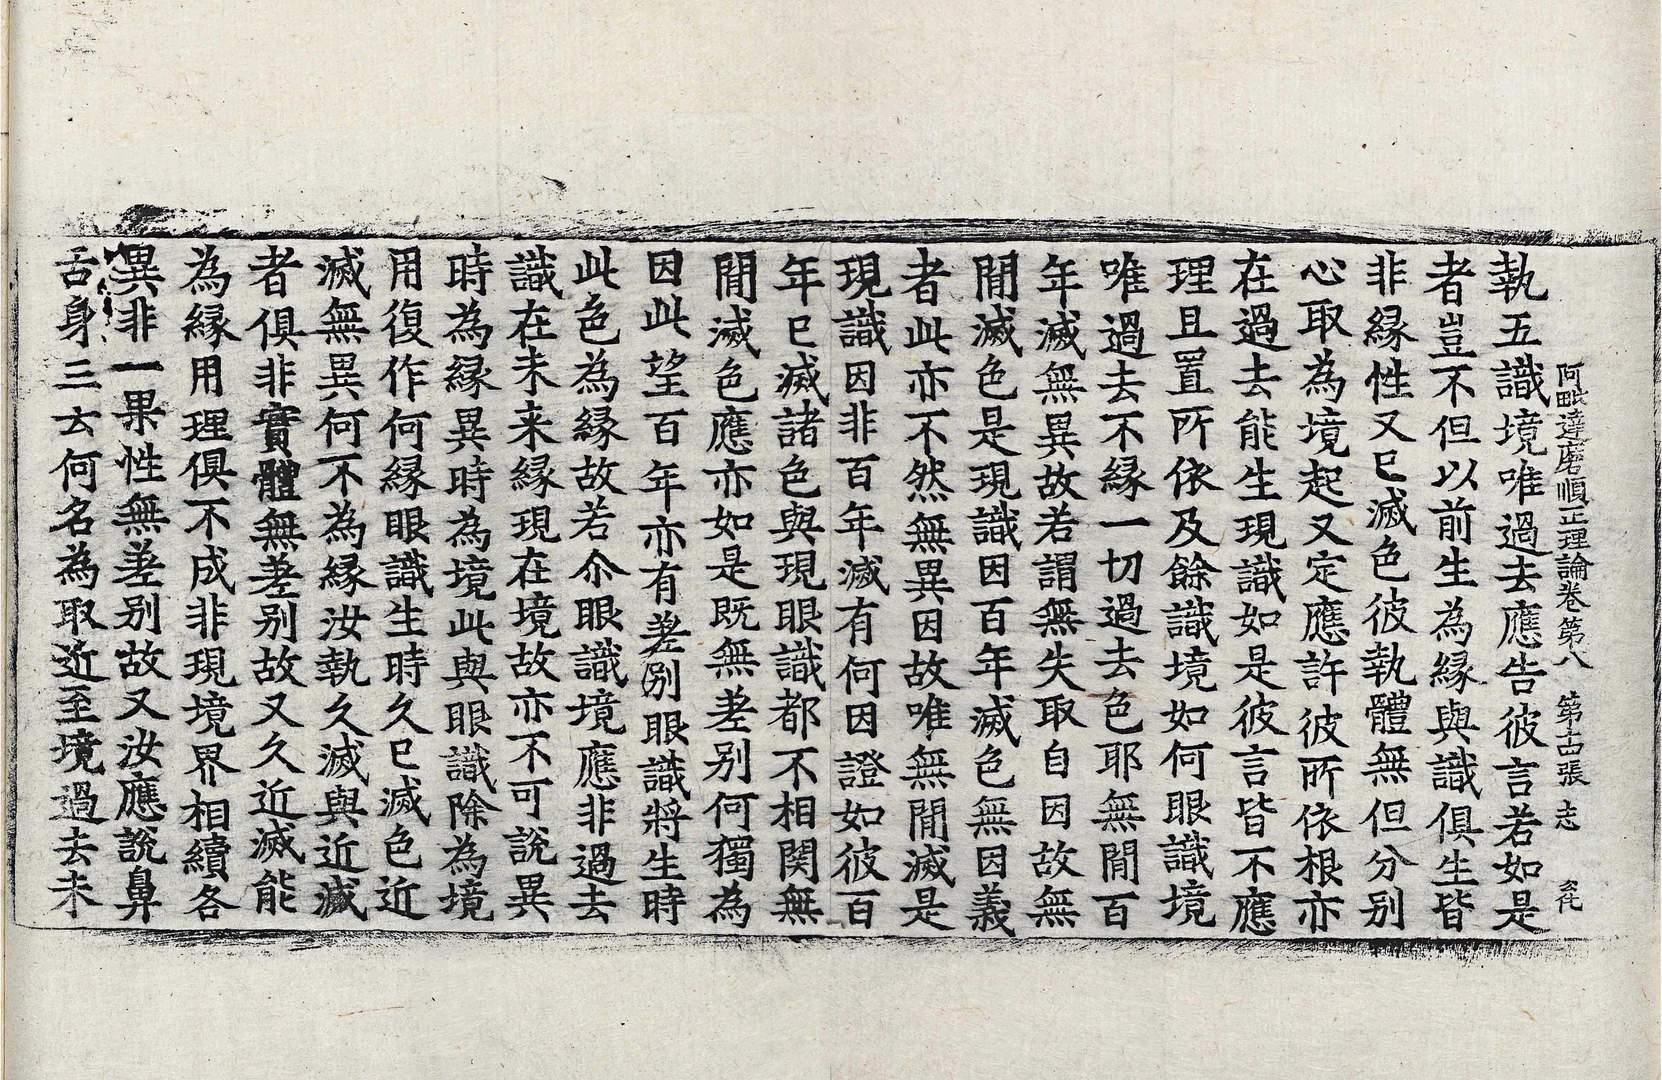 阿毗達磨順正理論卷第八 第古張 志
執五識境唯過去應告彼言若如是
者豈不但以前生為緣與識俱生皆
非緣性又已滅色彼執體無但分別
心取為境起又定應許彼所依根亦
在過去能生現識如是彼言皆不應
理且置所依及餘識境如何眼識境
唯過去不緣一切過去色耶無閒百
年滅無異故若謂無失取自因故無
閒滅色是現識因百年滅色無因義
者此亦不然無異因故唯無閒滅是
現識因非百年滅有何因證如彼百
年已滅諸色與現眼識都不相関無
閒滅色應亦如是既無差別何獨為
因此望百年亦有差別眼識將生時
此色為緣故若尒眼識境應非過去
識在未来緣現在境故亦不可說異
時為緣異時為境此與眼識除為境
用復作何緣眼識生時久已滅色近
滅無異何不為緣汝執久滅與近滅
者俱非實體無差別故又久近滅能
為緣用理俱不成非現境界相續各
異非一果性無差別故又汝應說鼻
舌身三云何名為取近至境過去未